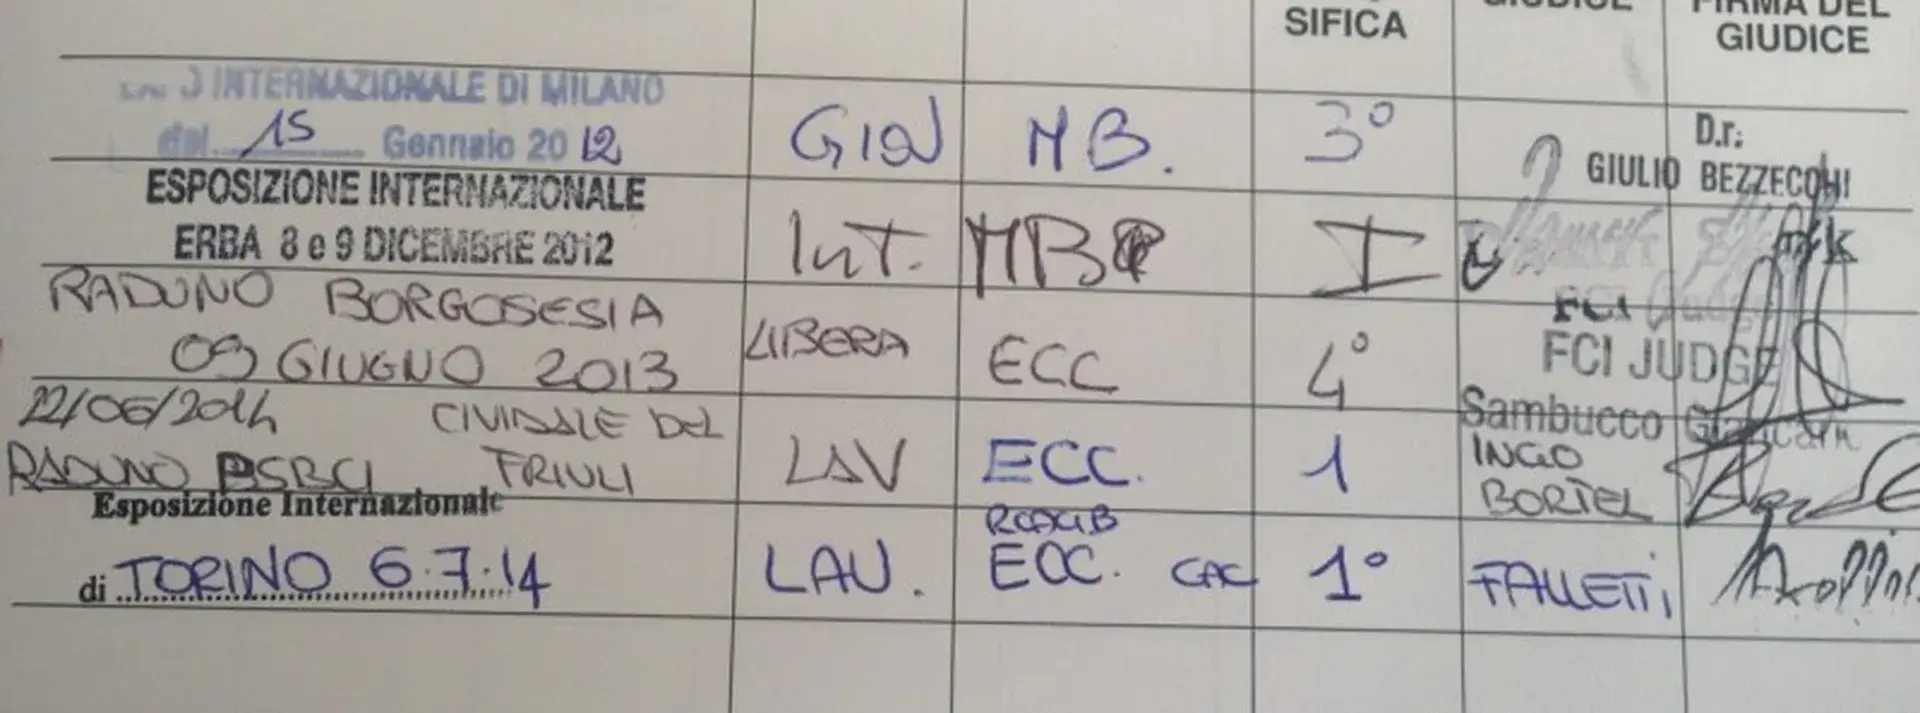 SIFICA
GIUDICE
FIRMA DEL
GIUDICE
INTERNAZIONALE DI MILANO
dal 15 Gennaio 2012
GIOV MB. 3°
D.r:
GIULIO BEZZECCHI
ESPOSIZIONE INTERNAZIONALE
ERBA 8 e 9 DICEMBRE 2012
INT. MB I
FCI
RADUNO BORGOSESIA
09 GIUGNO 2013
LIBERA ECC 4°
FCI JUDGE
Sambucco
22/06/2014 CIVIDALE DEL
RADUNO PSBCI FRIULI
LAV ECC. 1
INGO
BORTEL
Esposizione Internazionale
di TORINO 6.7.14
LAV. RCACIB
ECC. CAC 1° FALLETTI